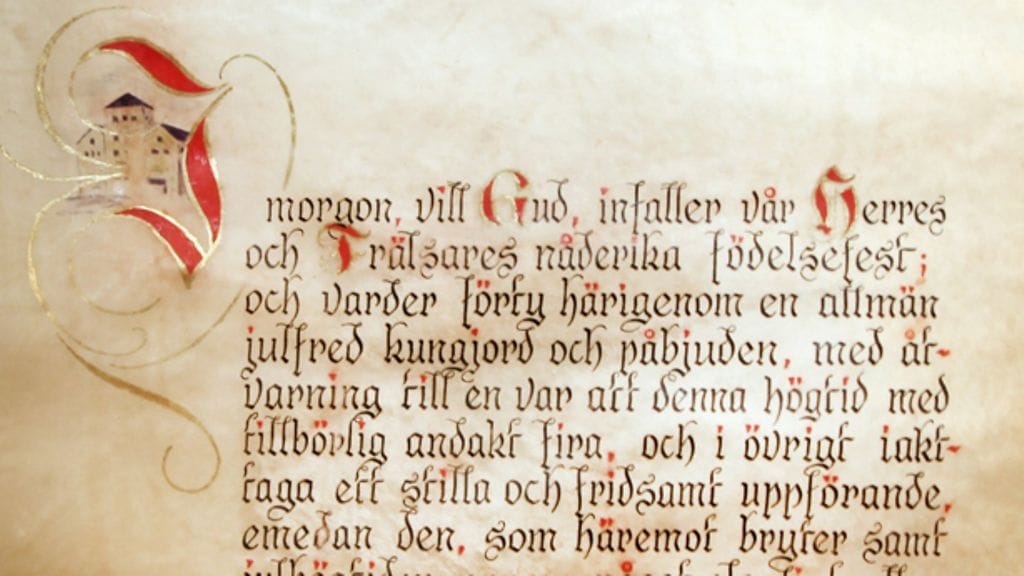 I morgon, vill Gud, infaller vår Herres
och Frälsares nåderika födelsefest;
och varder förty härigenom en allmän
julfred kungjord och påbjuden, med åt-
varning till en var att denna högtid med
tillbörlig andakt fira, och i övrigt iakt-
taga ett stilla och fridsamt uppförande,
emedan den, som häremot bryter samt